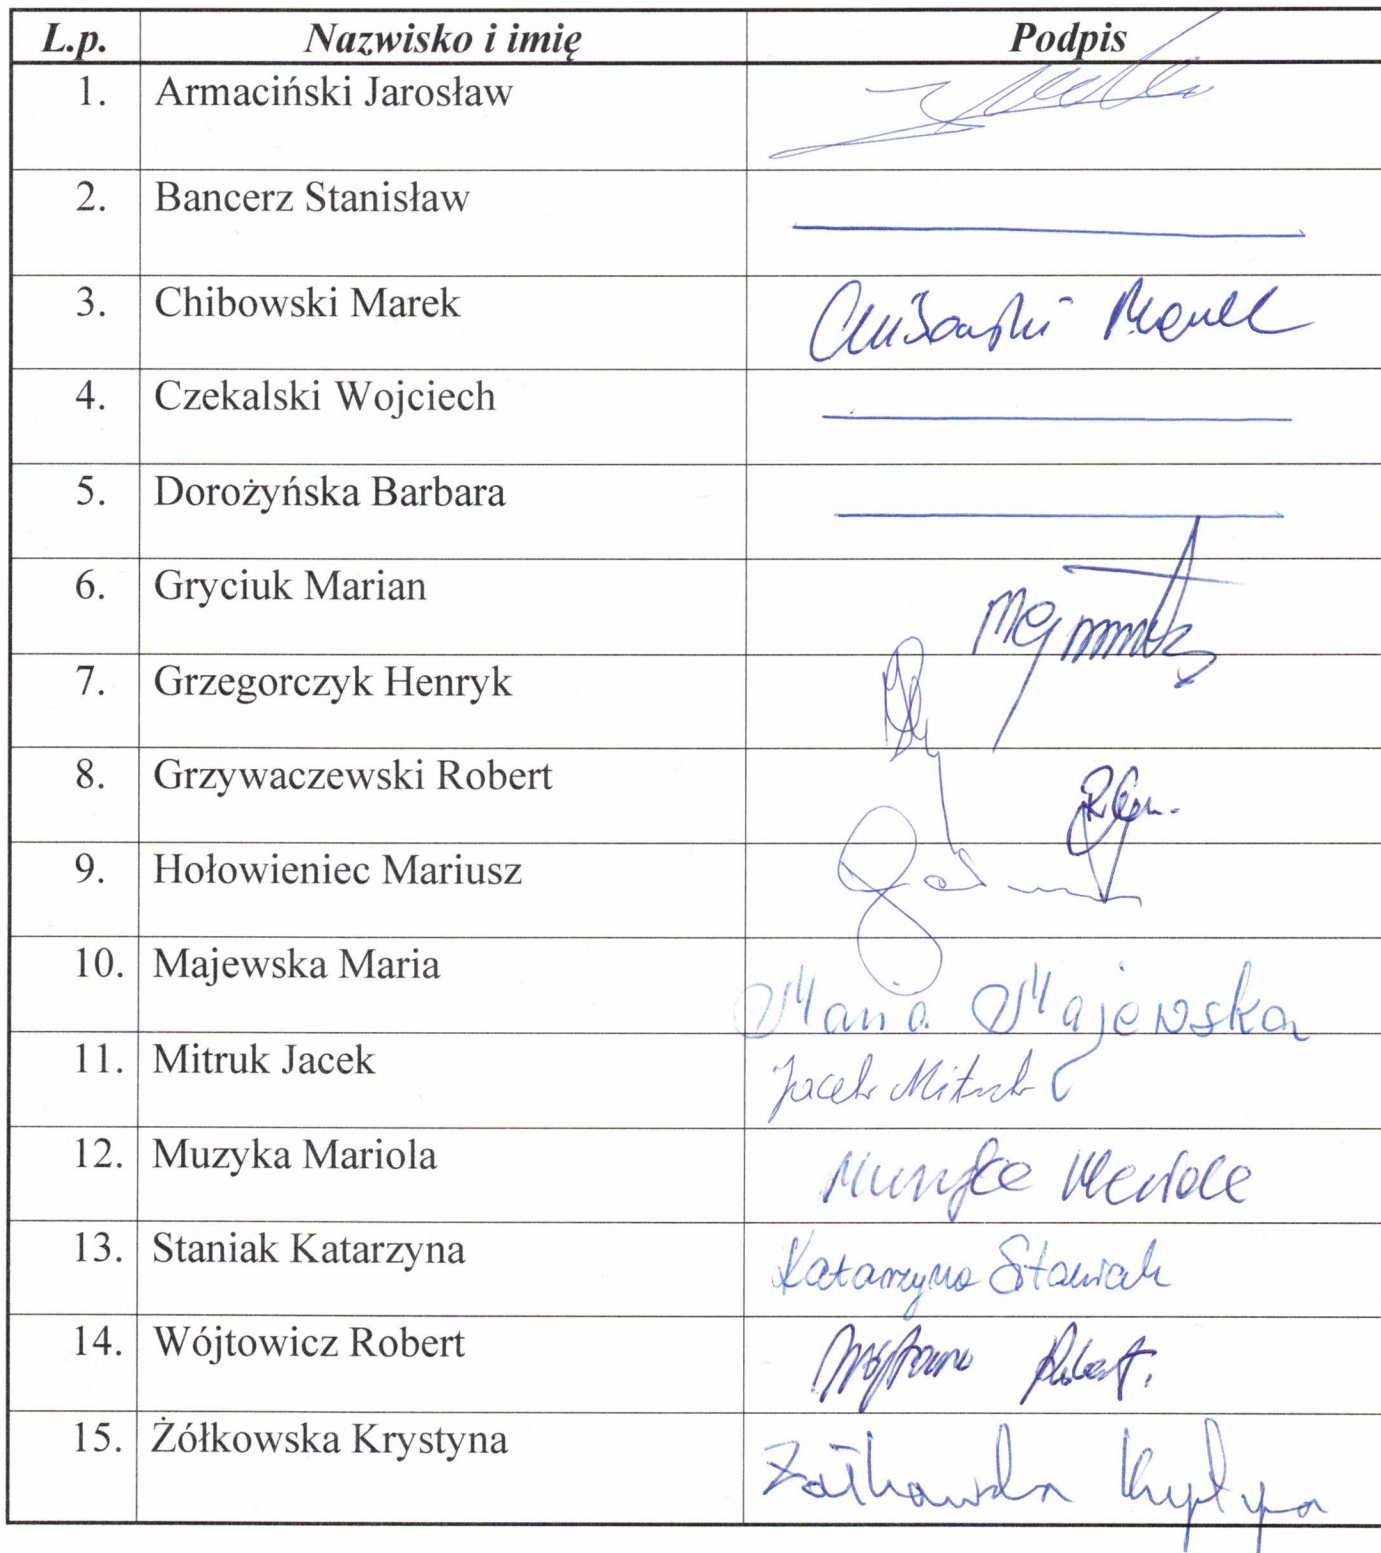 L.p. Nazwisko i imię Podpis
1. Armaciński Jarosław
2. Bancerz Stanisław
3. Chibowski Marek Chibowski Marek
4. Czekalski Wojciech
5. Dorożyńska Barbara
6. Gryciuk Marian
7. Grzegorczyk Henryk
8. Grzywaczewski Robert
9. Hołowieniec Mariusz
10. Majewska Maria Maria Majewska
11. Mitruk Jacek Jacek Mitruk
12. Muzyka Mariola Muzyka Mariola
13. Staniak Katarzyna Katarzyna Staniak
14. Wójtowicz Robert Robert
15. Żółkowska Krystyna Żółkowska Krystyna